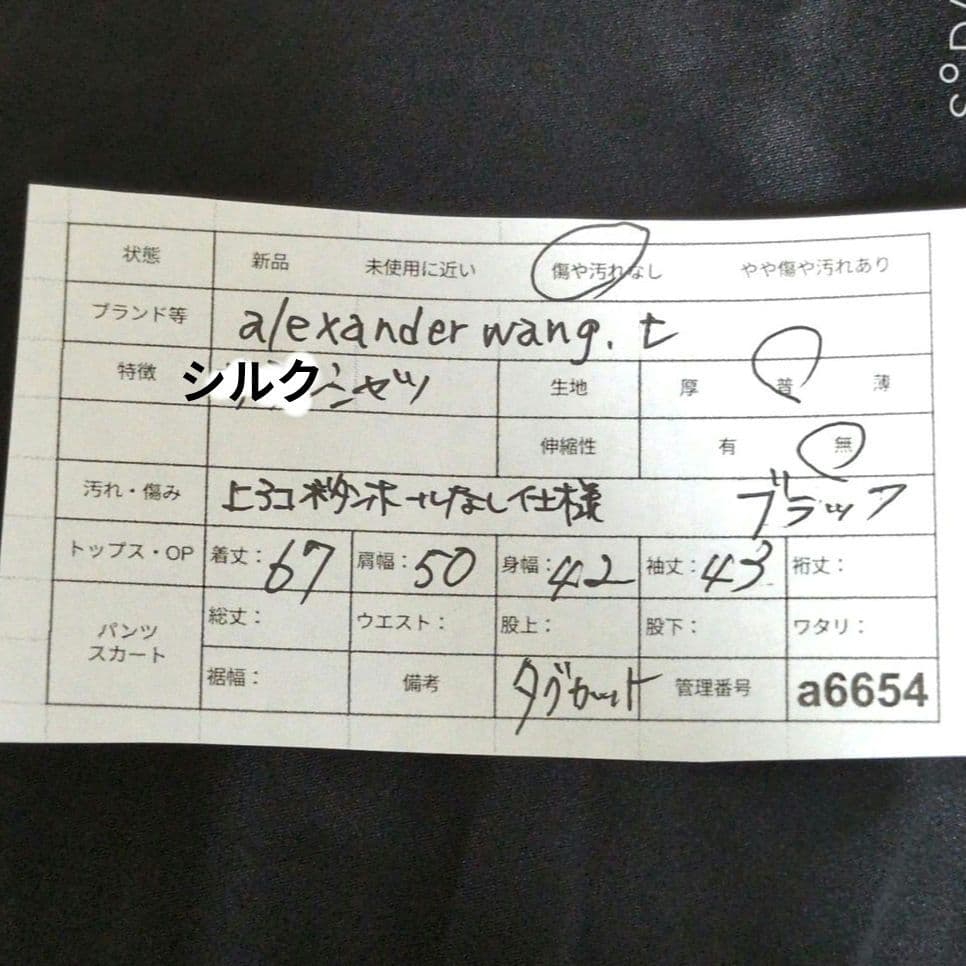 状態 新品 未使用に近い 傷や汚れなし やや傷や汚れあり
ブランド等 alexander wang. t
特徴 シルクシャツ 生地 厚 普 薄
伸縮性 有 無
汚れ・傷み 上3コボタンホールなし仕様 ブラック
トップス・OP 着丈：67 肩幅：50 身幅：42 袖丈：43 裄丈：
パンツ スカート 総丈： ウエスト： 股上： 股下： ワタリ：
裾幅： 備考 タグカット 管理番号 a6654